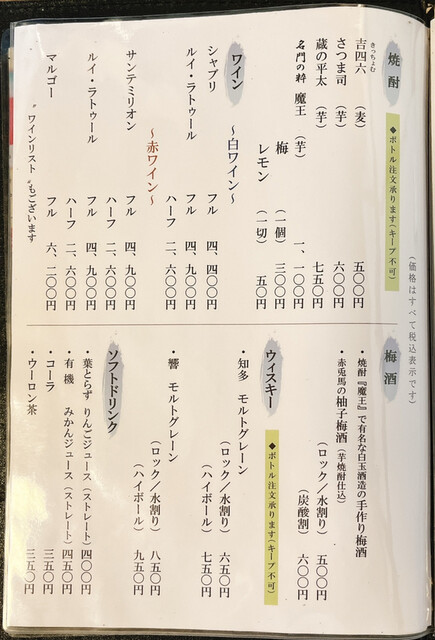 (価格はすべて税込表示です)
焼酎
◆ボトル注文承ります(キープ不可)
きっちょむ
吉四六 (麦) 五〇〇円
さつま司 (芋) 六〇〇円
蔵の平太 (芋) 七五〇円
名門の粋 魔王 (芋) 一、一〇〇円
梅 (一個) 三〇〇円
レモン (一切) 五〇円
ワイン
～白ワイン～
シャブリ フル 四、四〇〇円
ルイ・ラトゥール フル 四、九〇〇円
ハーフ 二、六〇〇円
～赤ワイン～
サンテミリオン フル 四、九〇〇円
ハーフ 二、六〇〇円
ルイ・ラトゥール フル 四、九〇〇円
ハーフ 二、六〇〇円
マルゴー フル 六、二〇〇円
〝ワインリスト〟もございます
梅酒
・焼酎『魔王』で有名な白玉酒造の手作り梅酒
・赤兎馬の柚子梅酒(芋焼酎仕込)
(ロック／水割り) 五〇〇円
(炭酸割) 六〇〇円
ウィスキー
◆ボトル注文承ります(キープ不可)
・知多 モルトグレーン
(ロック／水割り) 六五〇円
(ハイボール) 七五〇円
・響 モルトグレーン
(ロック／水割り) 八五〇円
(ハイボール) 九五〇円
ソフトドリンク
・葉とらず りんごジュース(ストレート) 四〇〇円
・有機 みかんジュース(ストレート) 四五〇円
・コーラ 三五〇円
・ウーロン茶 三五〇円